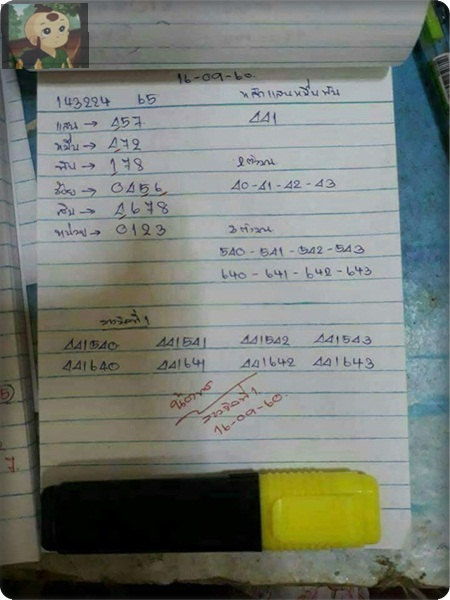 16-09-60.
143224 65
หลักแสนหมื่นพัน
แสน → 457
441
หมื่น → 472
พัน → 178
2 ตัวบน
ร้อย → 0456
40-41-42-43
สิบ → 4678
3 ตัวบน
หน่วย → 0123
540 - 541 - 542 - 543
640 - 641 - 642 - 643
รางวัลที่ 1
441540 441541 441542 441543
441640 441641 441642 441643
รางวัลที่ 1
16-09-60.
5